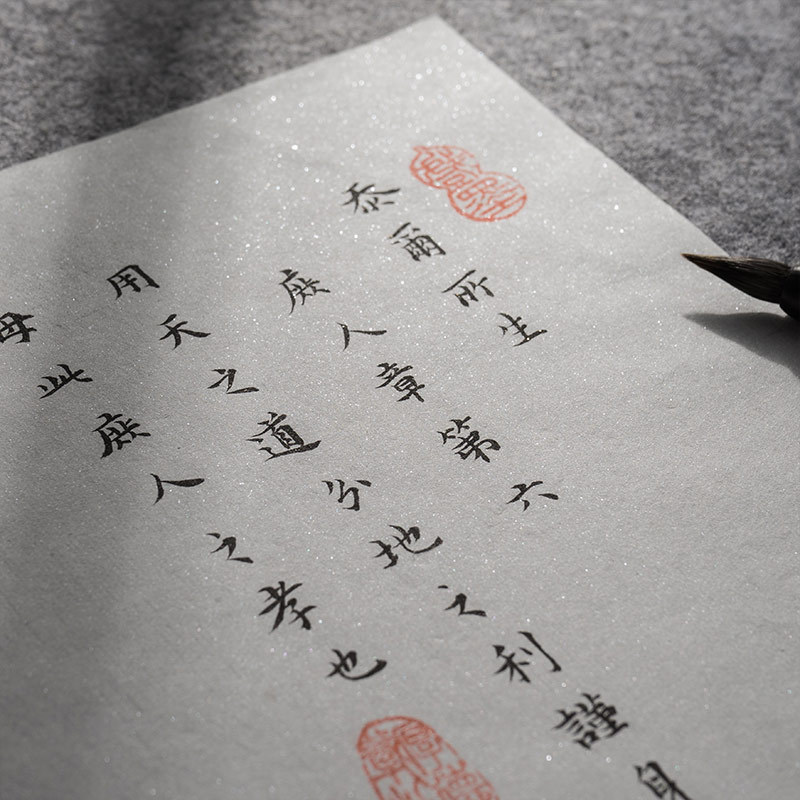 忝爾所生
庶人章第六
用天之道分地之利謹身
母此庶人之孝也